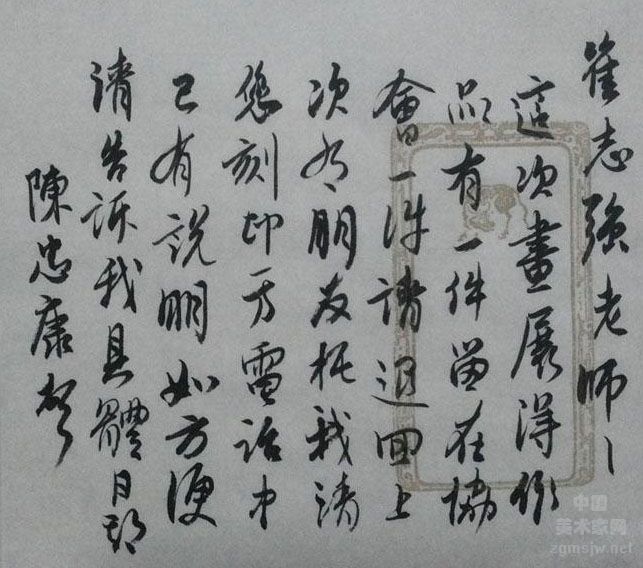 崔志強老师
這次畫展得作
品有一件留在協
會一件請退回上
次有朋友托我請
您刻印一方電話中
已有説明如方便
請告訴我具體日期
陳忠康
中国
美术家网
zgmsjw.net